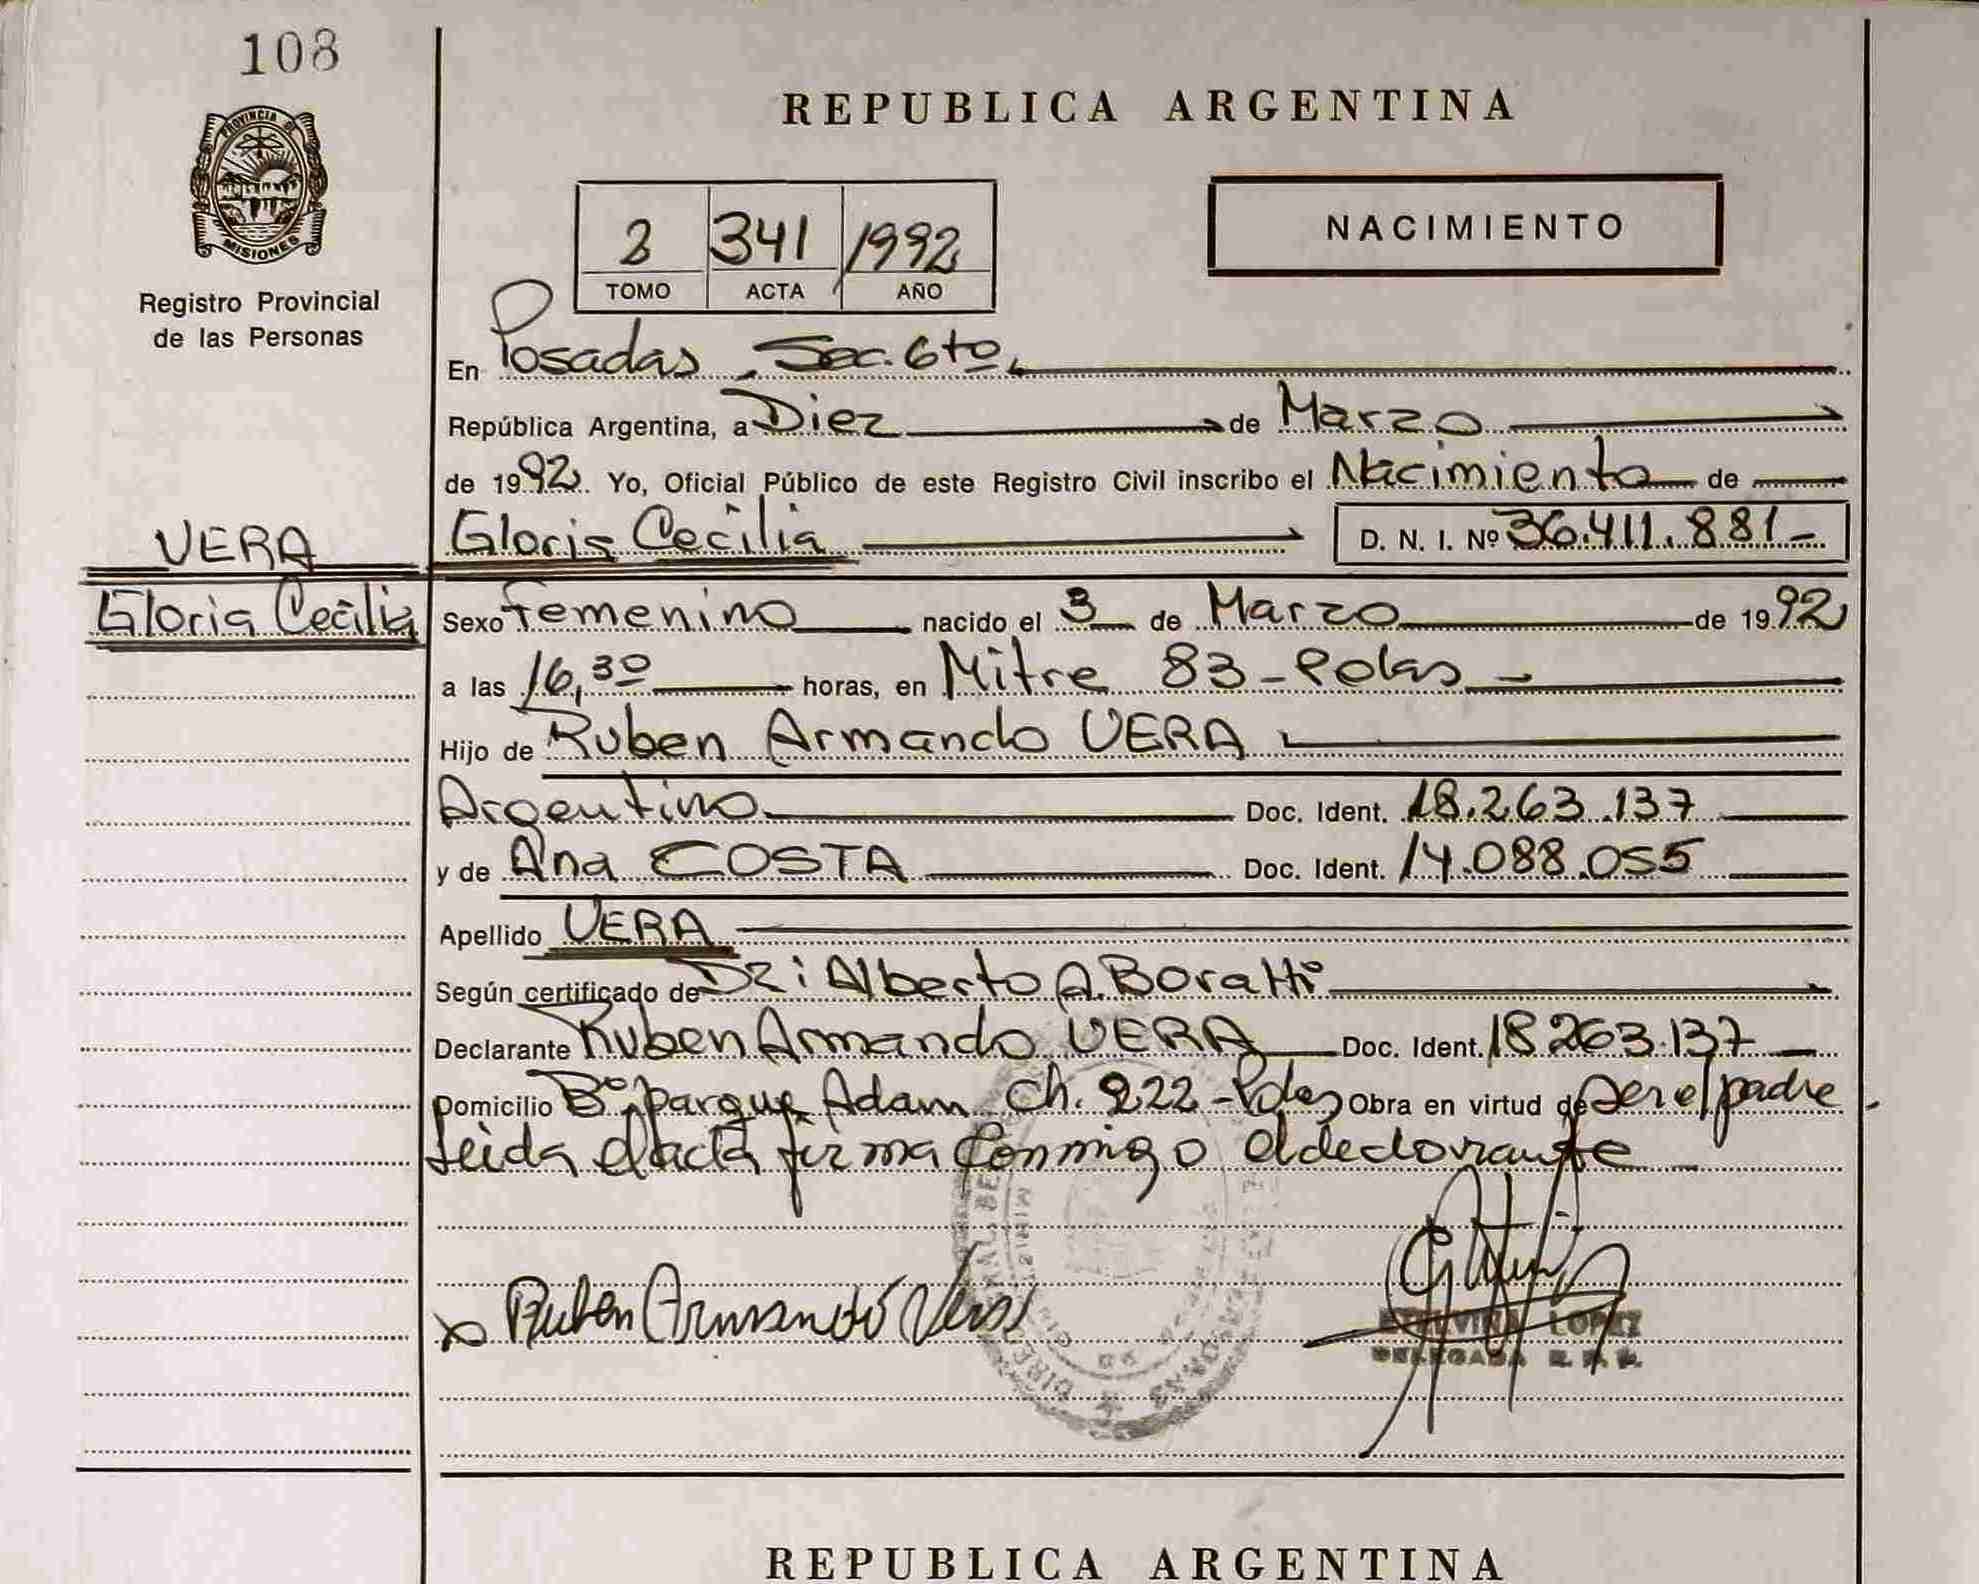 108
PROVINCIA DE
MISIONES
Registro Provincial
de las Personas
REPUBLICA ARGENTINA
NACIMIENTO
2 341 1992
TOMO ACTA AÑO
En Posadas, Sec. 6to,
República Argentina, a Diez de Marzo
de 1992. Yo, Oficial Público de este Registro Civil inscribo el Nacimiento de
VERA
Gloria Cecilia D. N. I. Nº 36.411.881
Gloria Cecilia
Sexo femenino nacido el 3 de Marzo de 1992
a las 16,30 horas, en Mitre 83 - Pdas
Hijo de Ruben Armando VERA
Argentino Doc. Ident. 18.263.137
y de Ana COSTA Doc. Ident. 14.088.055
Apellido VERA
Según certificado de Dr: Alberto A. Boratti
Declarante Ruben Armando VERA Doc. Ident. 18.263.137
Domicilio Bº parque Adam Ch. 222 - Pdas Obra en virtud de ser el padre
Leida el acta firma conmigo el declarante
Ruben Armando Vera
LOPEZ
DELEGADA R. P. P.
REPUBLICA ARGENTINA